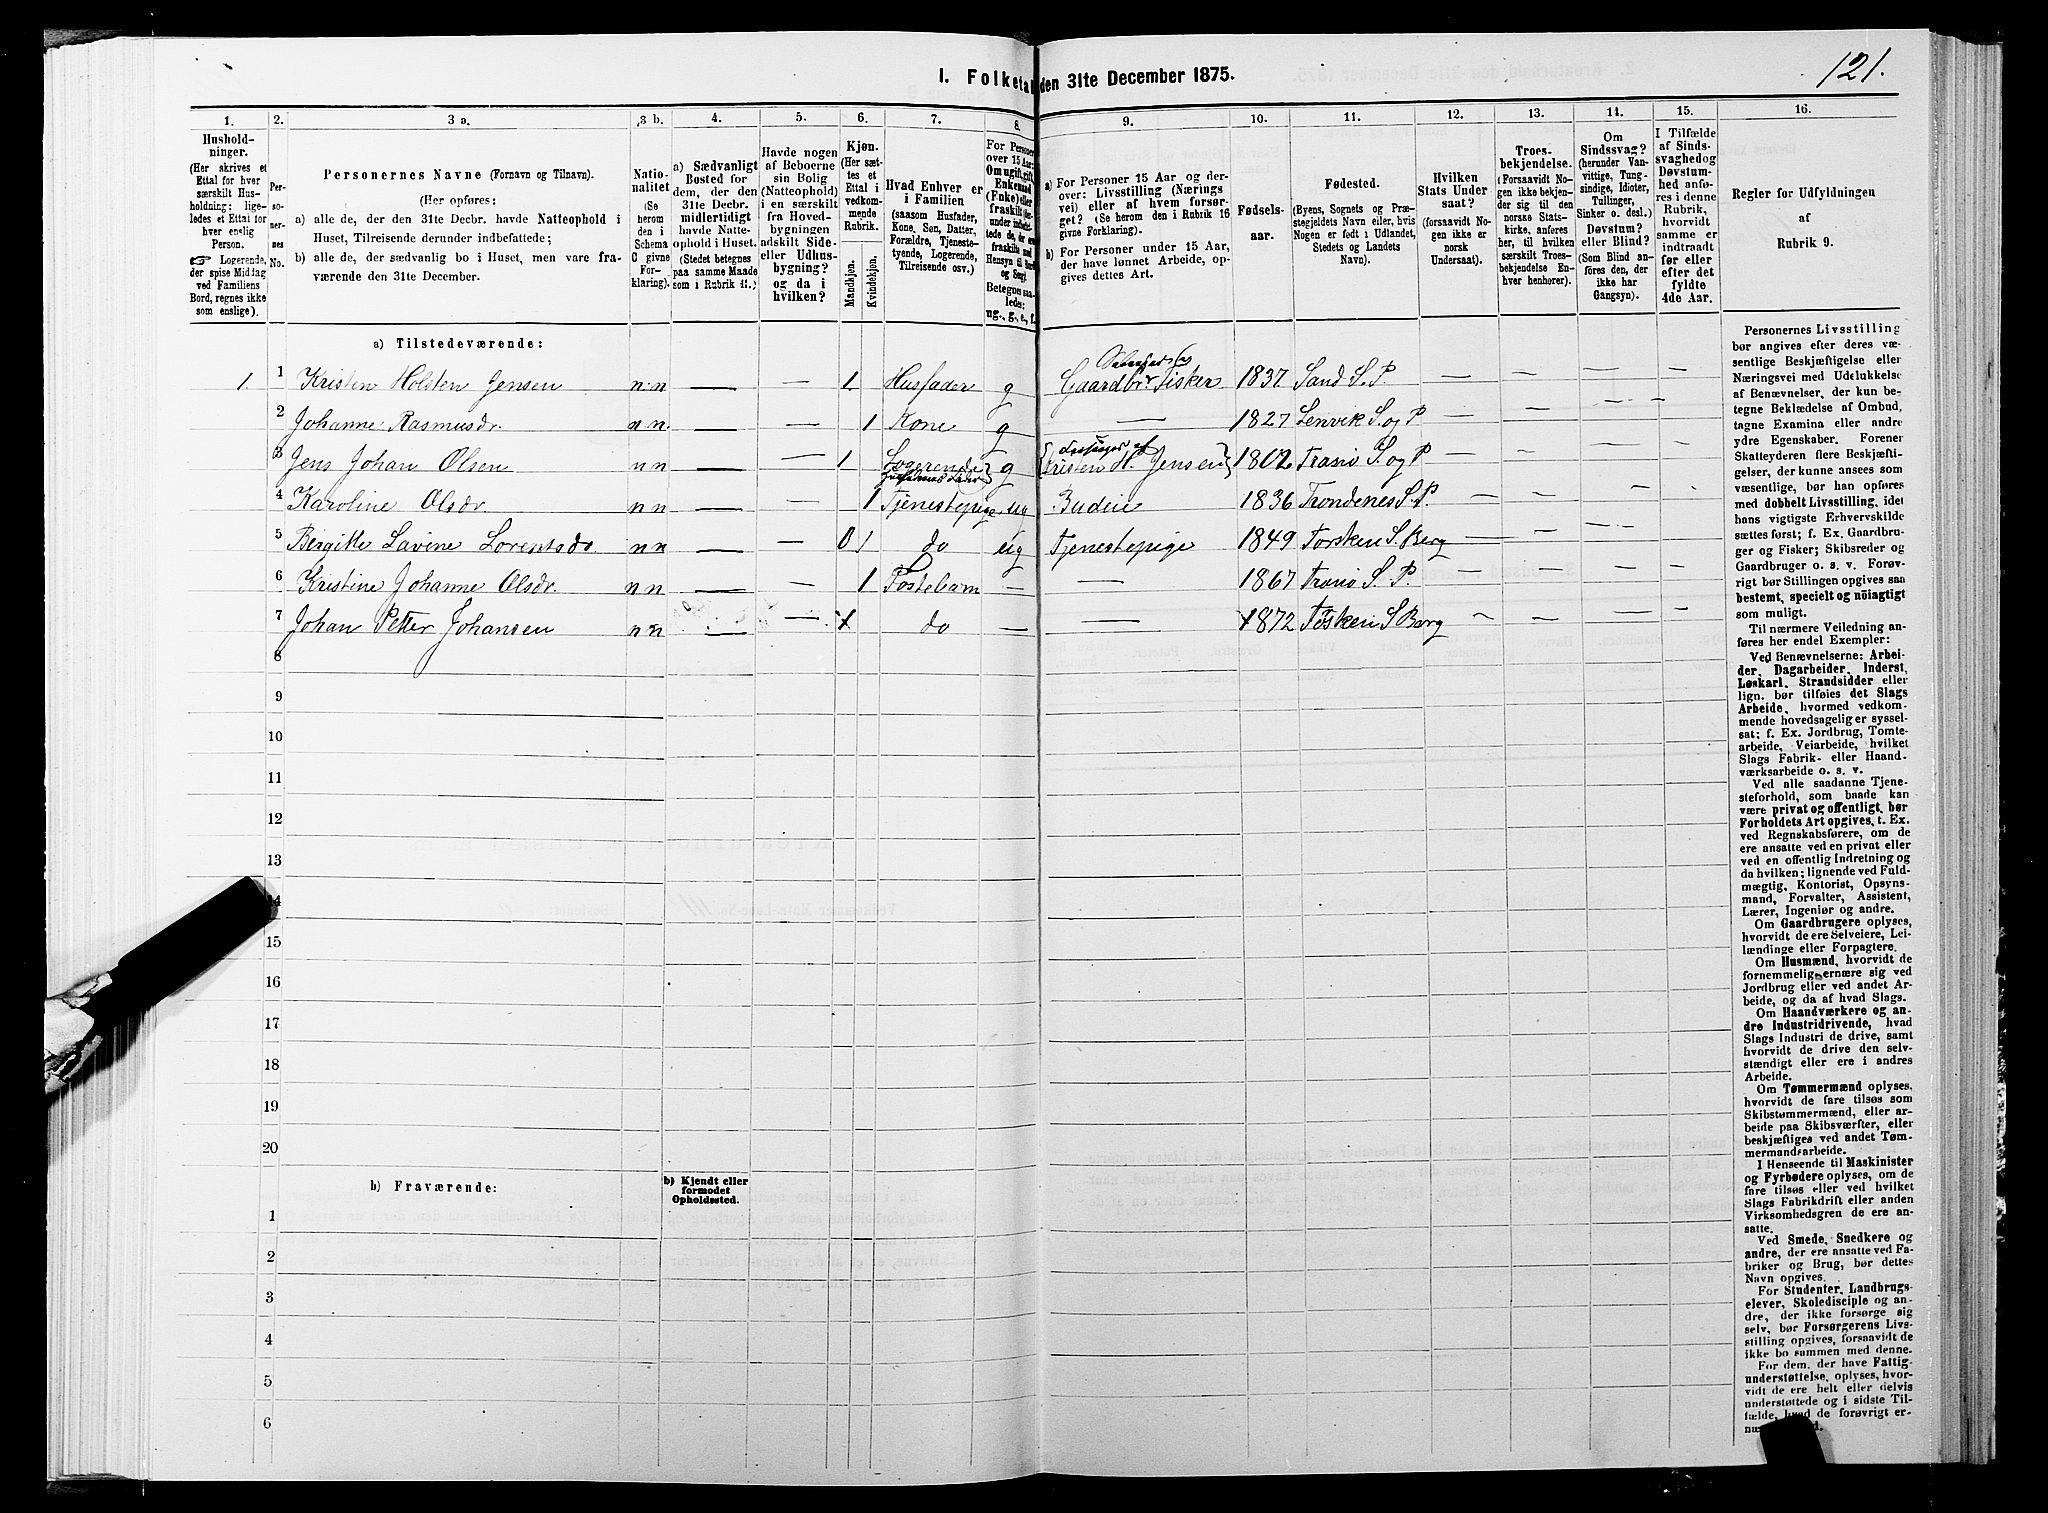 121.
I. Folketa den 31te December 1875.
1. 2. 3 a. 3 b. 4. 5. 6. 7. 8. 9. 10. 11. 12. 13. 14. 15. 16.
Hushold-
ninger.
(Her skrives et
Ettal for hver
særskilt Hus-
holdning; lige-
ledes et Ettal for
hver enslig
Person.
Logerende,
der spise Middag
ved Familiens
Bord, regnes ikke
som enslige).
Per-
so-
ner-
nes
No.
Personernes Navne (Fornavn og Tilnavn).
(Her opføres:
a) alle de, der den 31te Decbr. havde Natteophold i
Huset, Tilreisende derunder indbefattede;
b) alle de, der sædvanlig bo i Huset, men vare fra-
værende den 31te December.
Natio-
nalitet
(Se
herom
den i
Schema
C givne
For-
klaring).
a) Sædvanligt
Bosted for
dem, der den
31te Decbr.
midlertidigt
havde Natte-
ophold i Huset.
(Stedet betegnes
paa samme Maade
som i Rubrik 11.)
Havde nogen
af Beboerne
sin Bolig
(Natteophold)
i en særskilt
fra Hoved-
bygningen
adskilt Side-
eller Udhus-
bygning?
og da i
hvilken?
Kjøn.
(Her sæt-
tes et
Ettal i
vedkom-
mende
Rubrik.
Mandkjøn.
Kvindekjøn.
Hvad Enhver er
i Familien
(saasom Husfader,
Kone, Søn, Datter,
Forældre, Tjeneste-
tyende, Logerende,
Tilreisende osv.)
For Personer
over 15 Aar:
Om ugift, gift,
Enkemand
(Enke) eller
fraskilt
Betegnes saa-
ledes:
ug., g., e., f.
a) For Personer 15 Aar og der-
over: Livsstilling (Nærings
vei) eller af hvem forsør-
get? (Se herom den i Rubrik 16
givne Forklaring).
b) For Personer under 15 Aar,
der have lønnet Arbeide, op-
gives dettes Art.
Fødsels-
aar.
Fødested.
(Byens, Sognets og Præ-
stegjeldets Navn eller, hvis
Nogen er født i Udlandet,
Stedets og Landets
Navn).
Hvilken
Stats Under
saat?
(forsaavidt No-
gen ikke er
norsk
Undersaat).
Troes-
bekjendelse.
(Forsaavidt No-
gen ikke bekjen-
der sig til den
norske Stats-
kirke, anføres
her, til hvilken
særskilt Troes-
bekjendelse En-
hver henhører).
Om
Sindssvag?
(herunder Van-
vittige, Tung-
sindige, Idioter,
Tullinger,
Sinker o. desl.)
Døvstum?
eller Blind?
(Som Blind an-
føres den, der
ikke har
Gangsyn).
I Tilfælde
af Sinds-
svaghedog
Døvstum-
hed anfø-
res i denne
Rubrik,
hvorvidt
samme er
indtraadt
før eller
efter det
fyldte
4de Aar.
Regler for Udfyldningen
af
Rubrik 9.
a) Tilstedeværende:
1 1 Kristen Holsten Jensen n n — — 1 Husfader g Selveier og Gaardbr Fisker 1837 Sand S. P — — — —
2 Johanne Rasmusdr. n n — — 1 Kone g — 1827 Lenvik S. og P — — — —
3 Jens Johan Olsen n n — — 1 Logerende Husfaderens Fader g forsørges af Kristen H. Jensen 1802 Tranø S. og P — — — —
4 Karoline Olsdr n n — — 1 Tjenestepige ug Budeie 1836 Trondenes S. P. — — — —
5 Bergitte Lavine Lorentsdr n n — — 0 1 do ug Tjenestepige 1849 Torsken S. Berg — — — —
6 Kristine Johanne Olsdr. n n — — 1 Fostebarn — — 1867 Tranø S. P. — — — —
7 Johan Petter Johansen n n — — 1 do — — 1872 Tosken S Berg — — — —
8
9
10
11
12
13
14
15
16
17
18
19
20
b) Fraværende:
b) Kjendt eller
formodet
Opholdssted.
1
2
3
4
5
6
Personernes Livsstilling
bør angives efter deres væ-
sentlige Beskjæftigelse eller
Næringsvei med Udelukkelse
af Benævnelser, der kun be-
tegne Beklædelse af Ombud,
tagne Examina eller andre
ydre Egenskaber. Forener
Skatteyderen flere Beskjæfti-
gelser, der kunne ansees som
væsentlige, bør han opføres
med dobbelt Livsstilling, idet
hans vigtigste Erhvervskilde
sættes først; f. Ex. Gaardbru-
ger og Fisker; Skibsreder og
Gaardbruger o. s. v. Forøv-
rigt bør Stillingen opgives saa
bestemt, specielt og nöiagtigt
som muligt.
Til nærmere Veiledning an-
føres her endel Exempler:
Ved Benævnelserne: Arbei-
der, Dagarbeider, Inderst,
Løskarl, Strandsidder eller
lign. bør tilføies det Slags
Arbeide, hvormed vedkom-
mende hovedsagelig er syssel-
sat; f. Ex. Jordbrug, Tomte-
arbeide, Veiarbeide, hvilket
Slags Fabrik- eller Haand-
værksarbeide o. s. v.
Ved alle saadanne Tjene-
steforhold, som baade kan
være privat og offentligt, bør
Forholdets Art opgives, t. Ex.
ved Regnskabsførere, om de
ere ansatte ved en privat eller
ved en offentlig Indretning og
da hvilken; lignende ved Fuld-
mægtig, Kontorist, Opsyns-
mand, Forvalter, Assistent,
Lærer, Ingeniør og andre.
Om Gaardbrugere oplyses,
hvorvidt de ere Selveiere, Lei-
lændinge eller Forpagtere.
Om Husmænd, hvorvidt de
fornemmelig ernære sig ved
Jordbrug eller ved andet Ar-
beide, og da af hvad Slags.
Om Haandværkere og an-
dre Industridrivende, hvad
Slags Industri de drive, samt
hvorvidt de drive den selv-
stændigt eller ere i andres
Arbeide.
Om Tømmermænd oplyses,
hvorvidt de fare tilsøs som
Skibstømmermænd, eller ar-
beide paa Skibsværfter, eller
beskjæftiges ved andet Tøm-
mermandsarbeide.
I Henseende til Maskinister
og Fyrbødere oplyses, om de
fare tilsøs eller ved hvilket
Slags Fabrikdrift eller anden
Virksomhedsgren de ere an-
satte.
Ved Smede, Snedkere og
andre, der ere ansatte ved Fa-
briker og Brug, bør dettes
Navn opgives.
For Studenter, Landbrugs-
elever, Skoledisciple og an-
dre, der ikke forsørge sig
selv, bør Forsørgerens Livs-
stilling opgives, forsaavidt de
ikke bo sammen med denne.
For dem, der have Fattig-
understøttelse, oplyses, hvor-
vidt de ere helt eller delvis
understøttede og i sidste Til-
fælde, hvad de forøvrigt er-